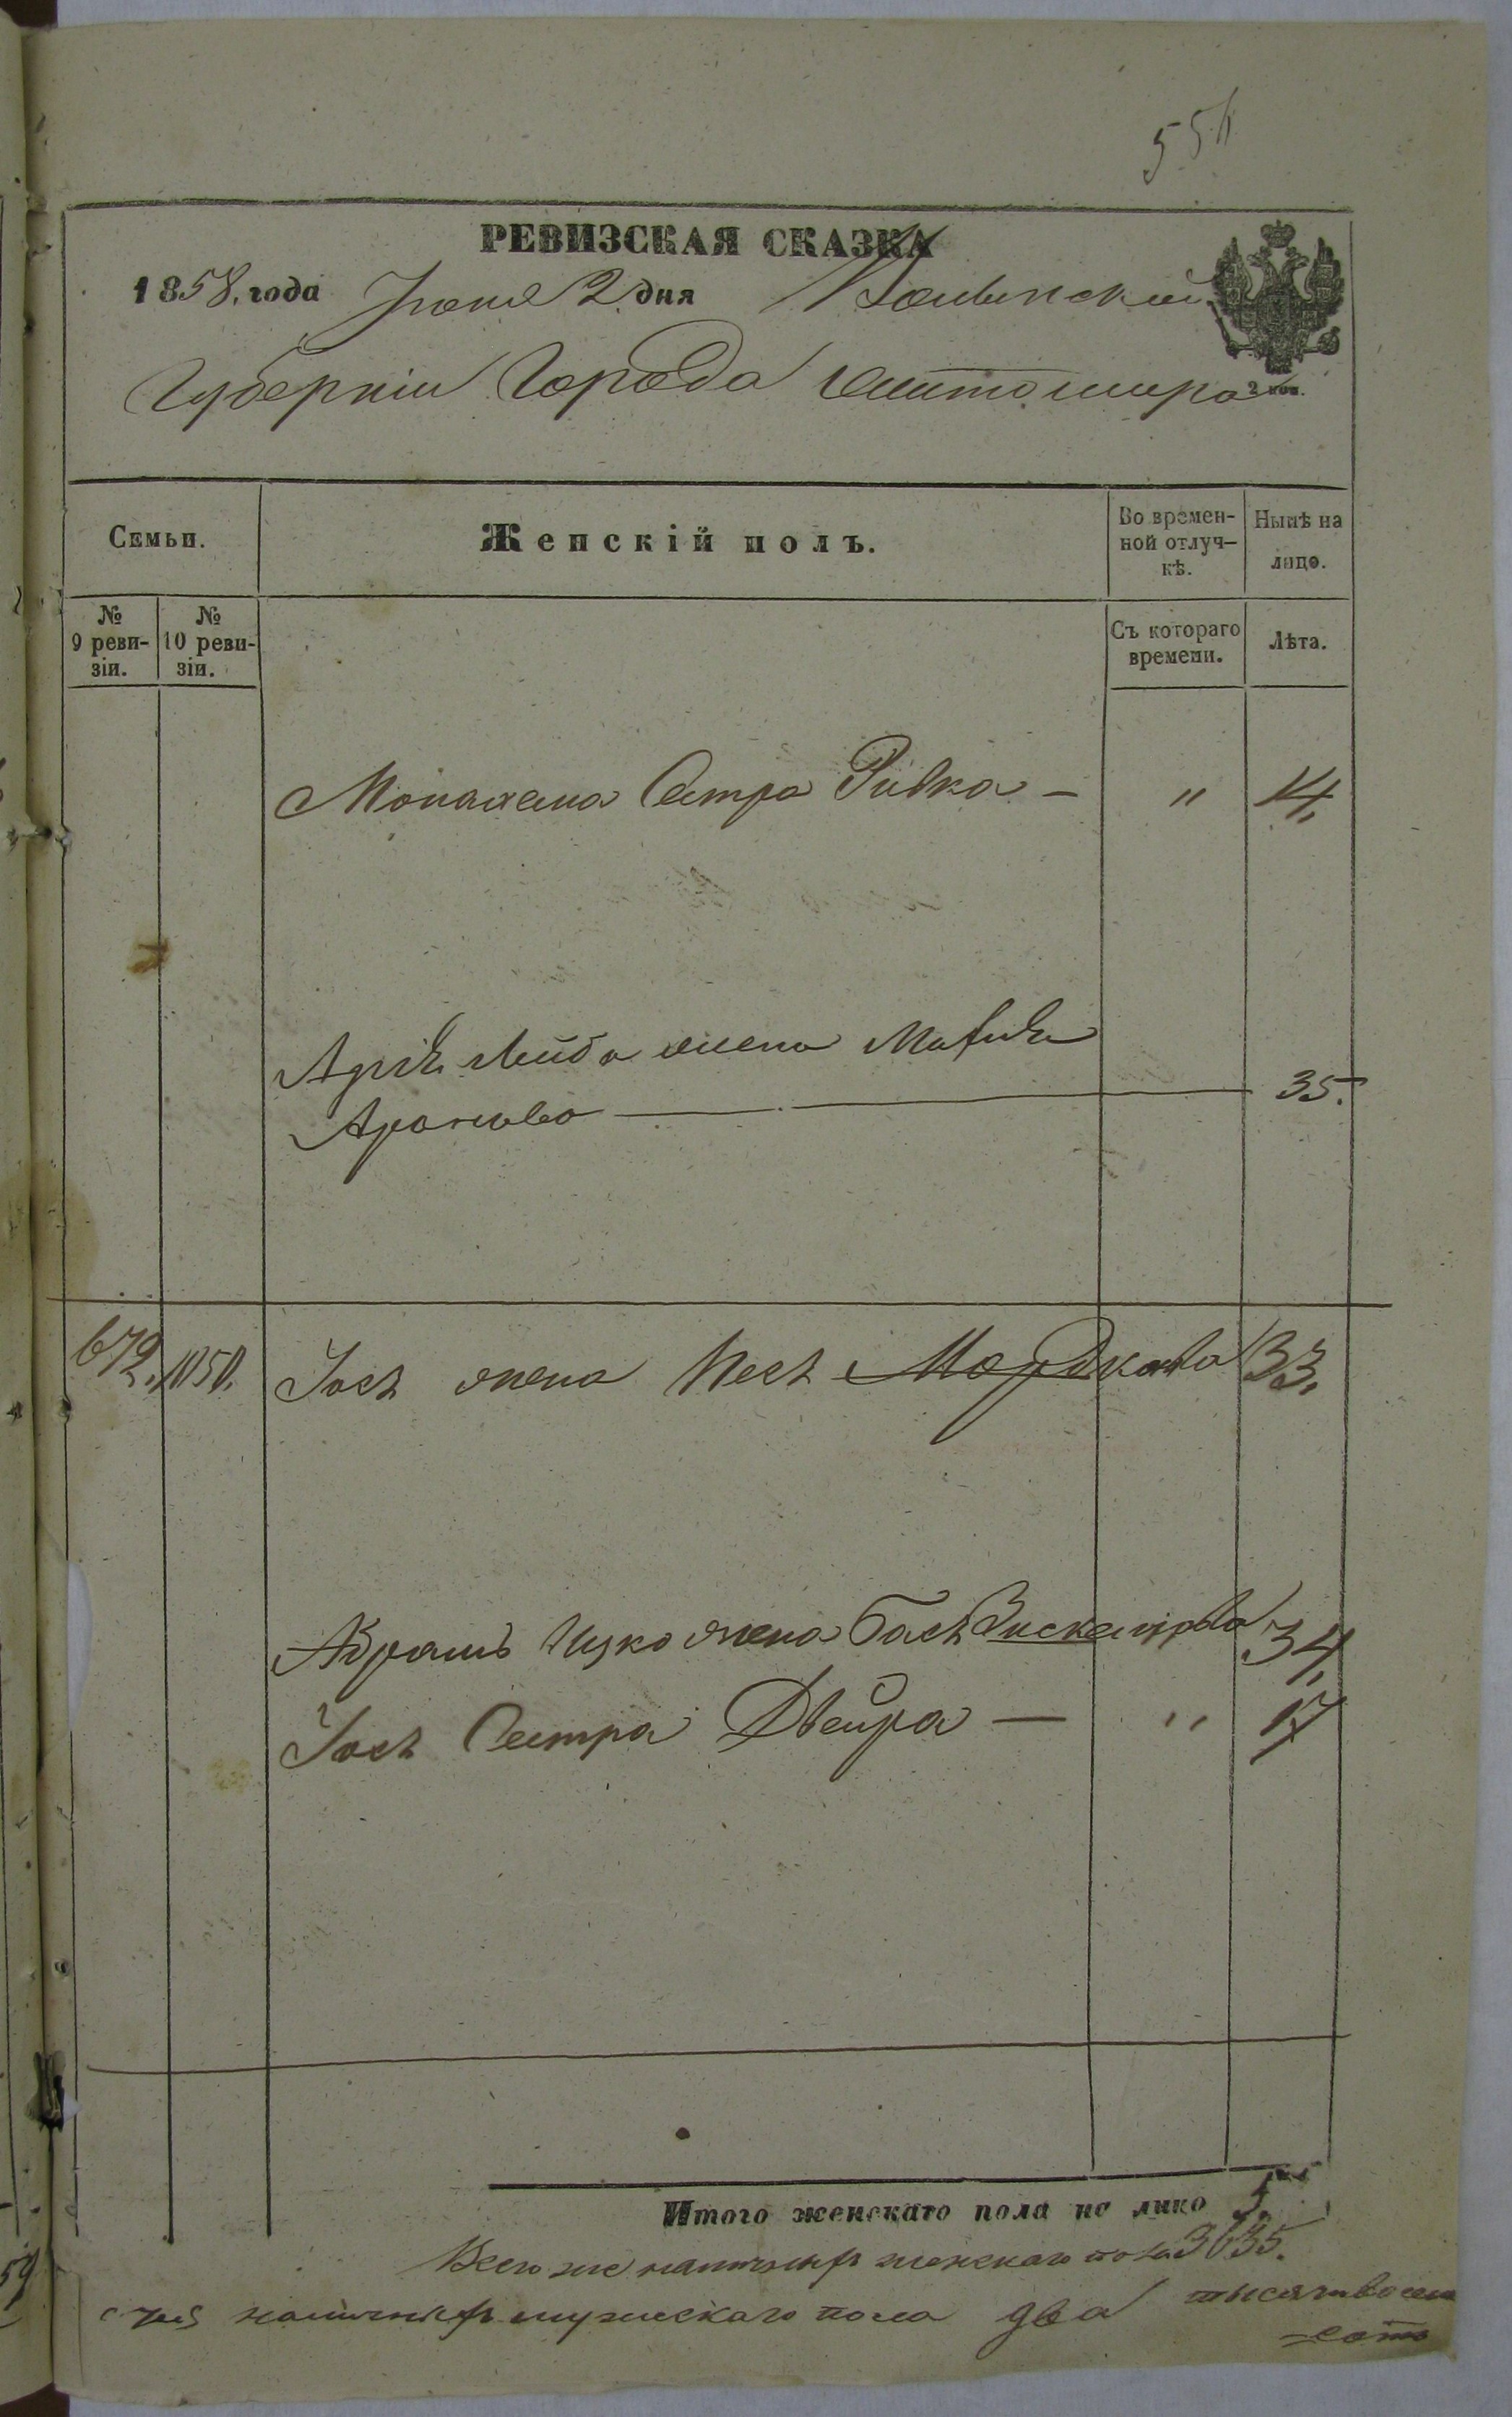 554
РЕВИЗСКАЯ СКАЗКА
1858. года Июня 2 дня Волынской
Губерніи Города Житомира
2 коп.
Семьи.
Женскій полъ.
Во времен-
ной отлуч-
кѣ.
Нынѣ на
лицо.
№
9 реви-
зіи.
№
10 реви-
зіи.
Съ котораго
времени.
Лѣта.
Монахема Сестра Ривка — " 14.
Лейба жена
Аронова — 35.
672. 1050. Іось жена Песя Мордкова 33.
Абрамъ Ицко жена Бася 34.
Іось Сестра Двейра — " 17
Итого женскаго пола на лицо 5.
Всего же наличныхъ женскаго пола 3635.
наличныхъ мужескаго пола два тысячи восем
=сотъ